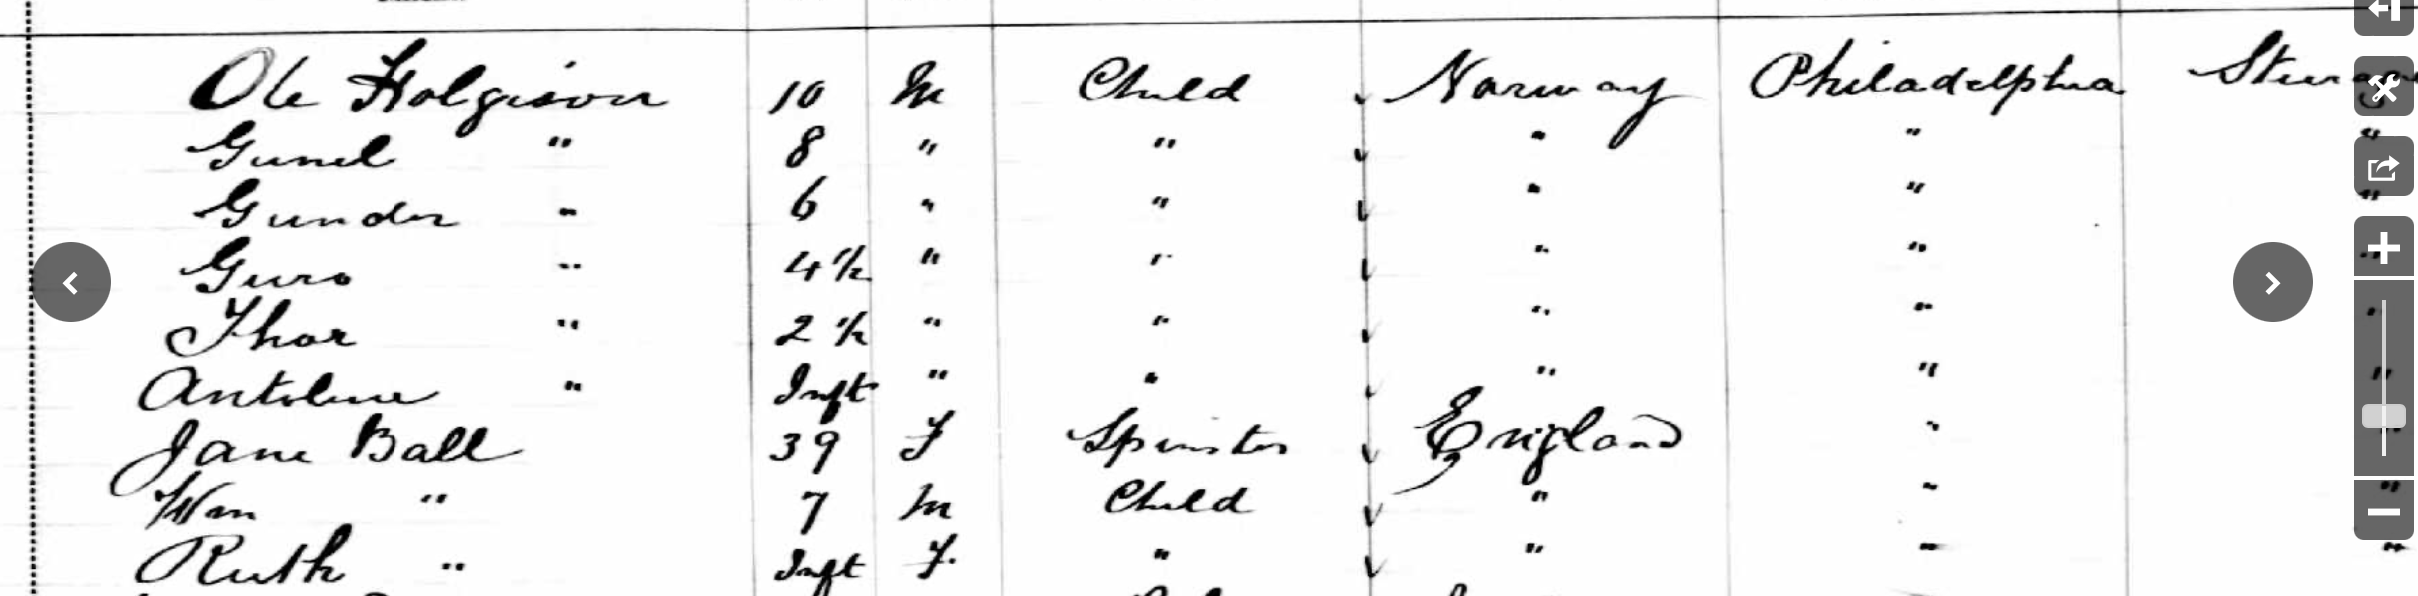 Ole Holgerson 10 M Child Norway Philadelphia
Gunel " 8 " " " " "
Gunder " 6 " " " " "
Guro " 4 ½ " " " " "
Thor " 2 ½ " " " " "
Antoline " Inft " " " " "
Jane Ball 39 F Spinster England " "
Wm " 7 M Child " " "
Ruth " Inft F. " " " "